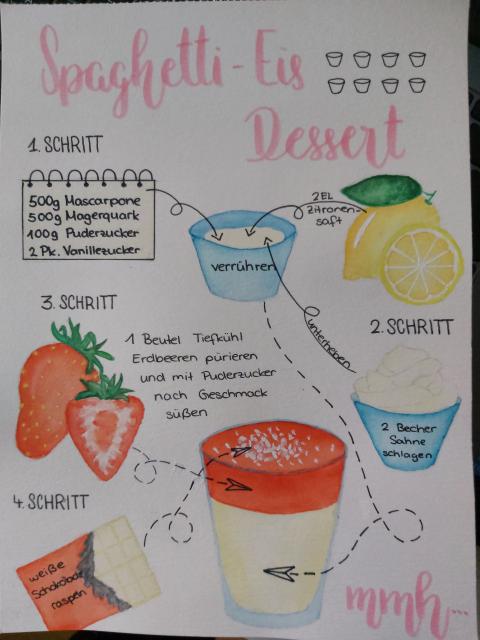 Spaghetti-Eis
Dessert
1. SCHRITT
500g Mascarpone
500g Magerquark
100g Puderzucker
2 Pk. Vanillezucker
verrühren
2EL
Zitronen-
saft
2. SCHRITT
unterheben
2 Becher
Sahne
schlagen
3. SCHRITT
1 Beutel Tiefkühl
Erdbeeren pürieren
und mit Puderzucker
nach Geschmack
süßen
4. SCHRITT
weiße
Schokolade
raspeln
mmh...